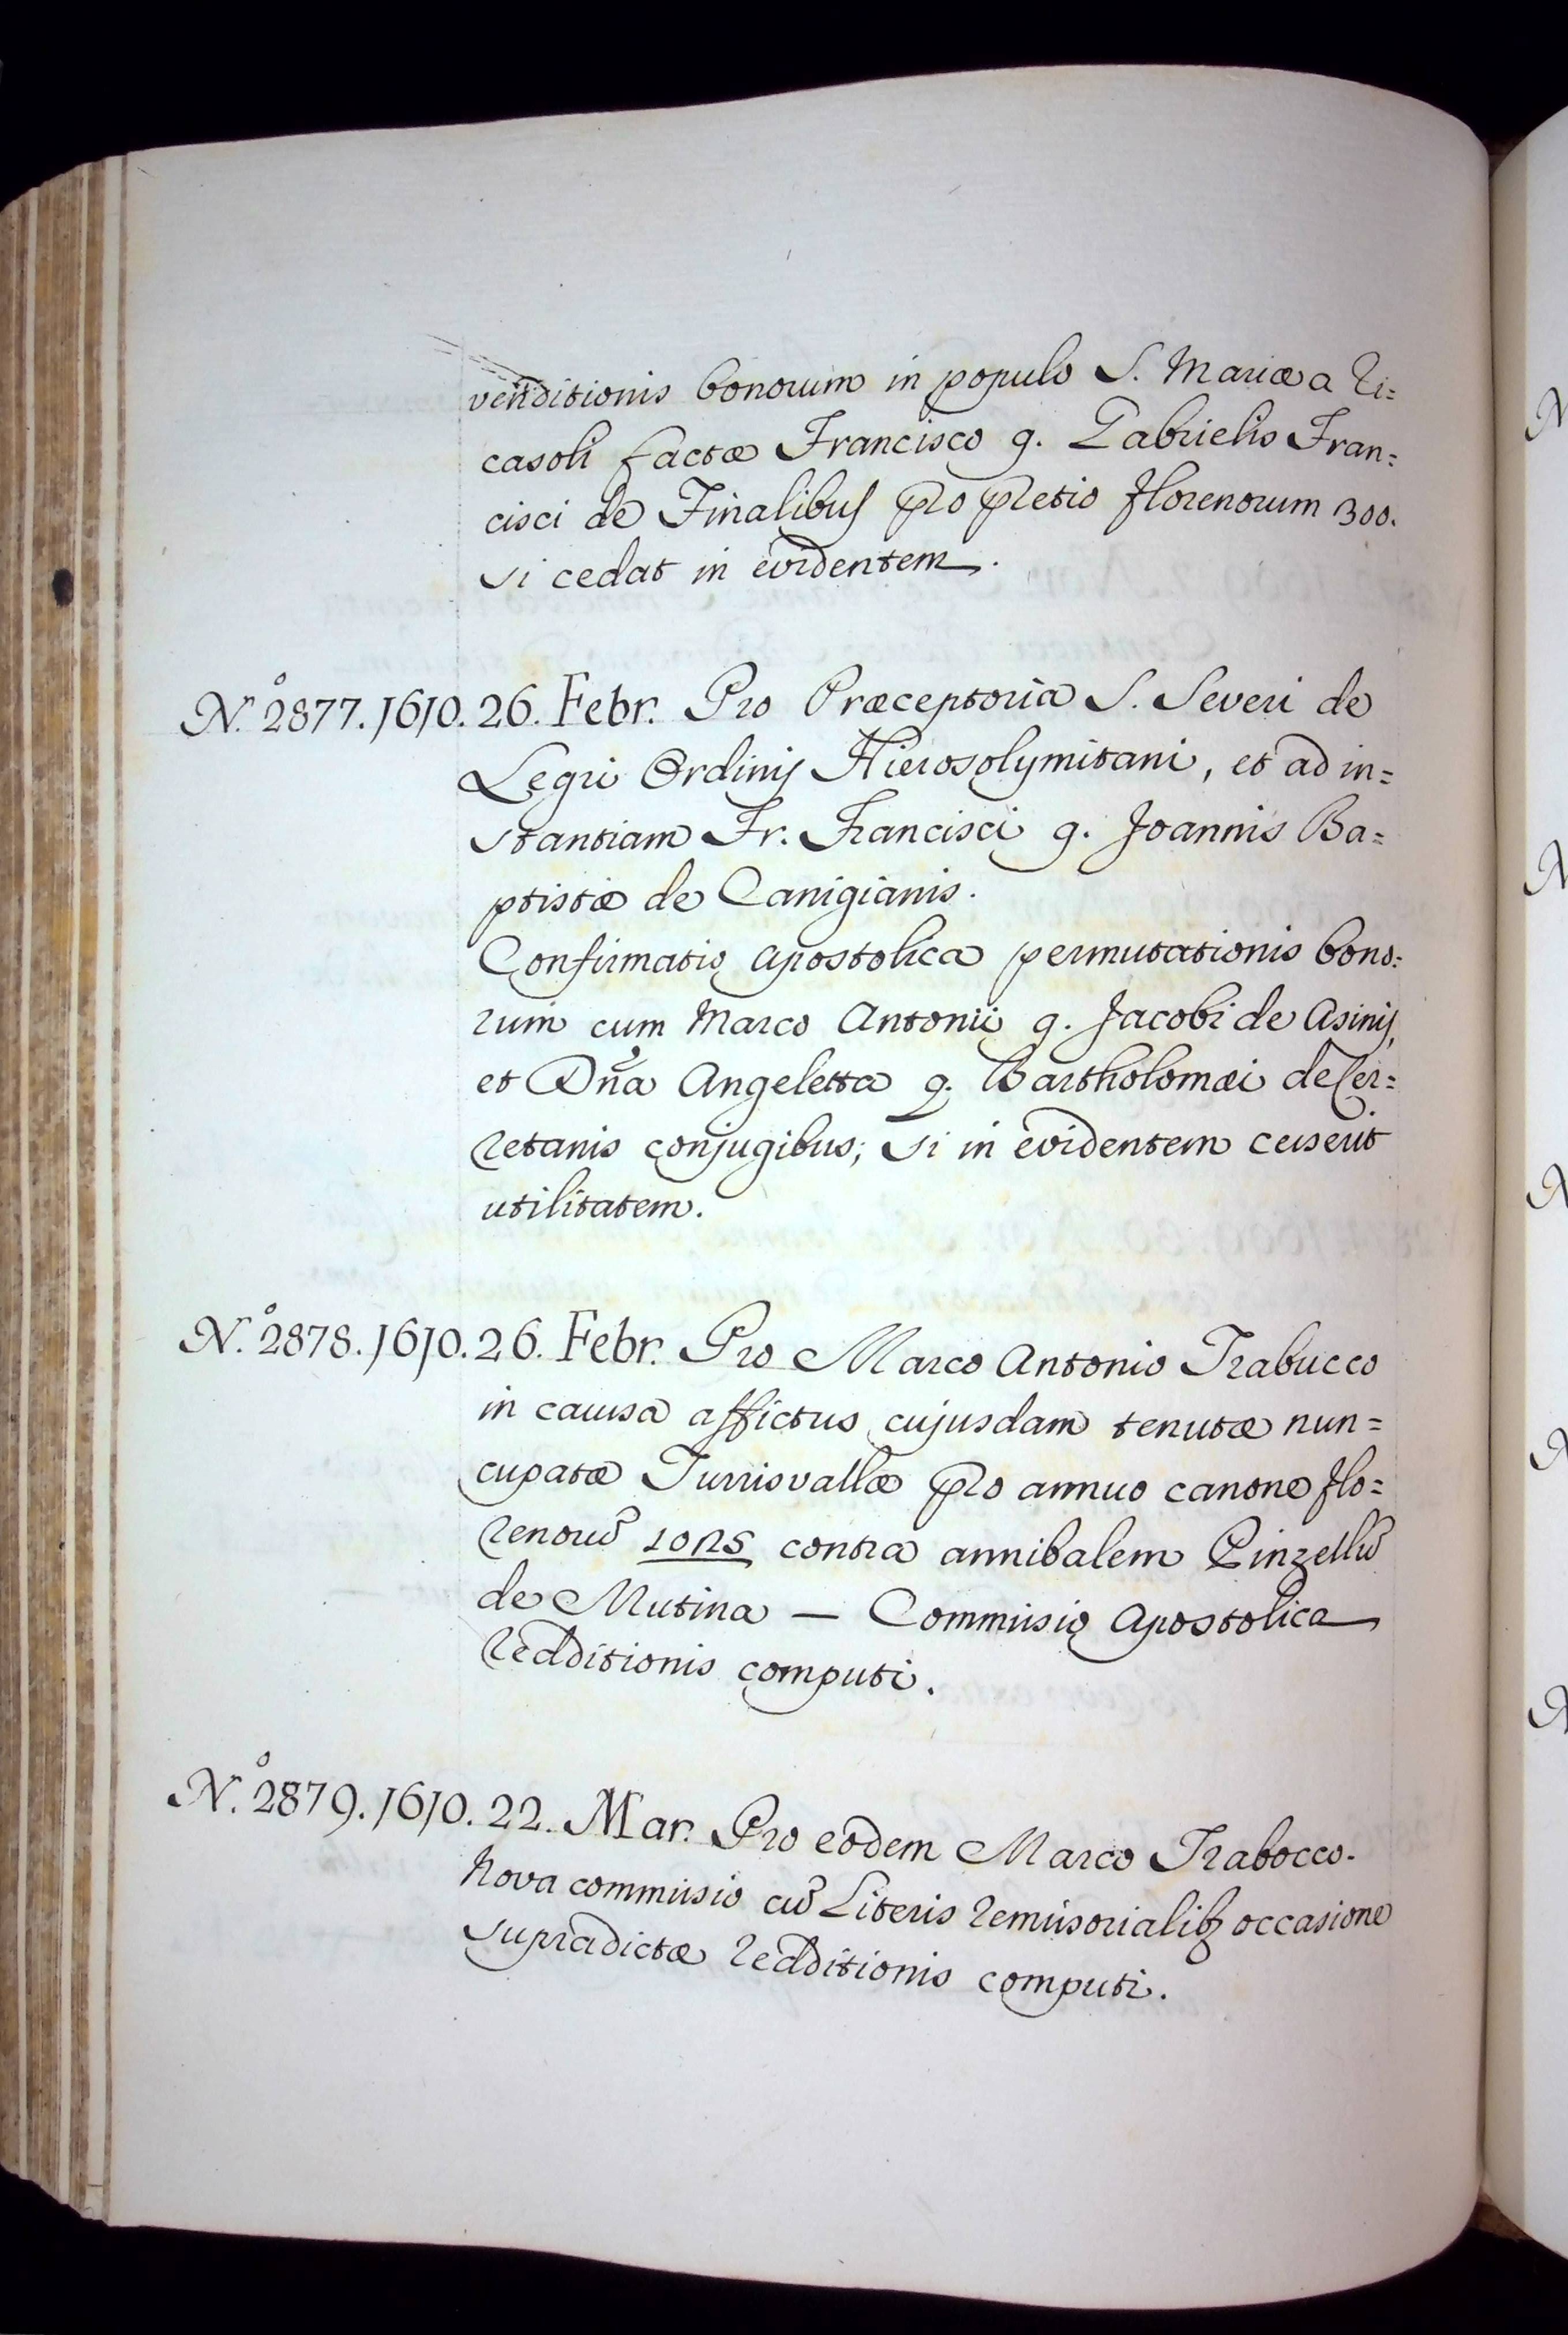 venditionis bonorum in populo S. Mariæ a Ri=
casoli factæ Francisco q. Gabrielis Fran=
cisci de Finalibus pro pretio florenorum 300.
si cedat in evidentem.
N.º 2877. 1610. 26. Febr. Pro Præceptoria S. Severi de
Legri Ordinis Hierosolymitani, et ad in=
stantiam Fr. Francisci q. Joannis Ba=
ptistæ de Canigianis.
Confirmatio Apostolica permutationis bono=
rum cum Marco Antonii q. Jacobi de Asinis,
et Dña Angeletta q. Bartholomæi de Cer=
retanis conjugibus; si in evidentem cesserit
utilitatem.
N.º 2878. 1610. 26. Febr. Pro Marco Antonio Trabucco
in caussa affictus cujusdam tenutæ nun=
cupatæ Turrisvallæ pro annuo canone flo=
renorũ 1025 contra Annibalem Pinzellũ
de Mutina — Commissio Apostolica
redditionis computi.
N.º 2879. 1610. 22. Mar. Pro eodem Marco Trabocco.
Nova commissio cũ Literis remissorialibꝫ occasione
supradictæ redditionis computi.